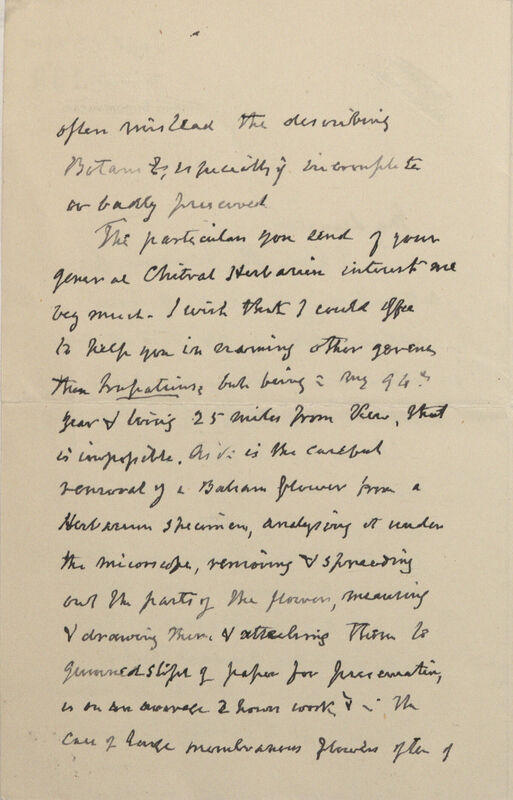 often mislead the describing
Botanists, especially if incomplete
or badly preserved
The particulars you send of your
general Chitral Herbarium interest me
very much. I wish that I could offer
to help you in naming other genera
than Impatiens, but being in my 94th
year & living 25 miles from Kew, that
is impossible. As it is the careful
removal of a Balsam flower from a
Herbarium specimen, analysing it under
the microscope, removing & spreading
out the parts of the flower, measuring
& drawing them & attaching them to
gummed slips of paper for preservation,
is on an average 2 hours work, & in the
case of large membranous flowers often of